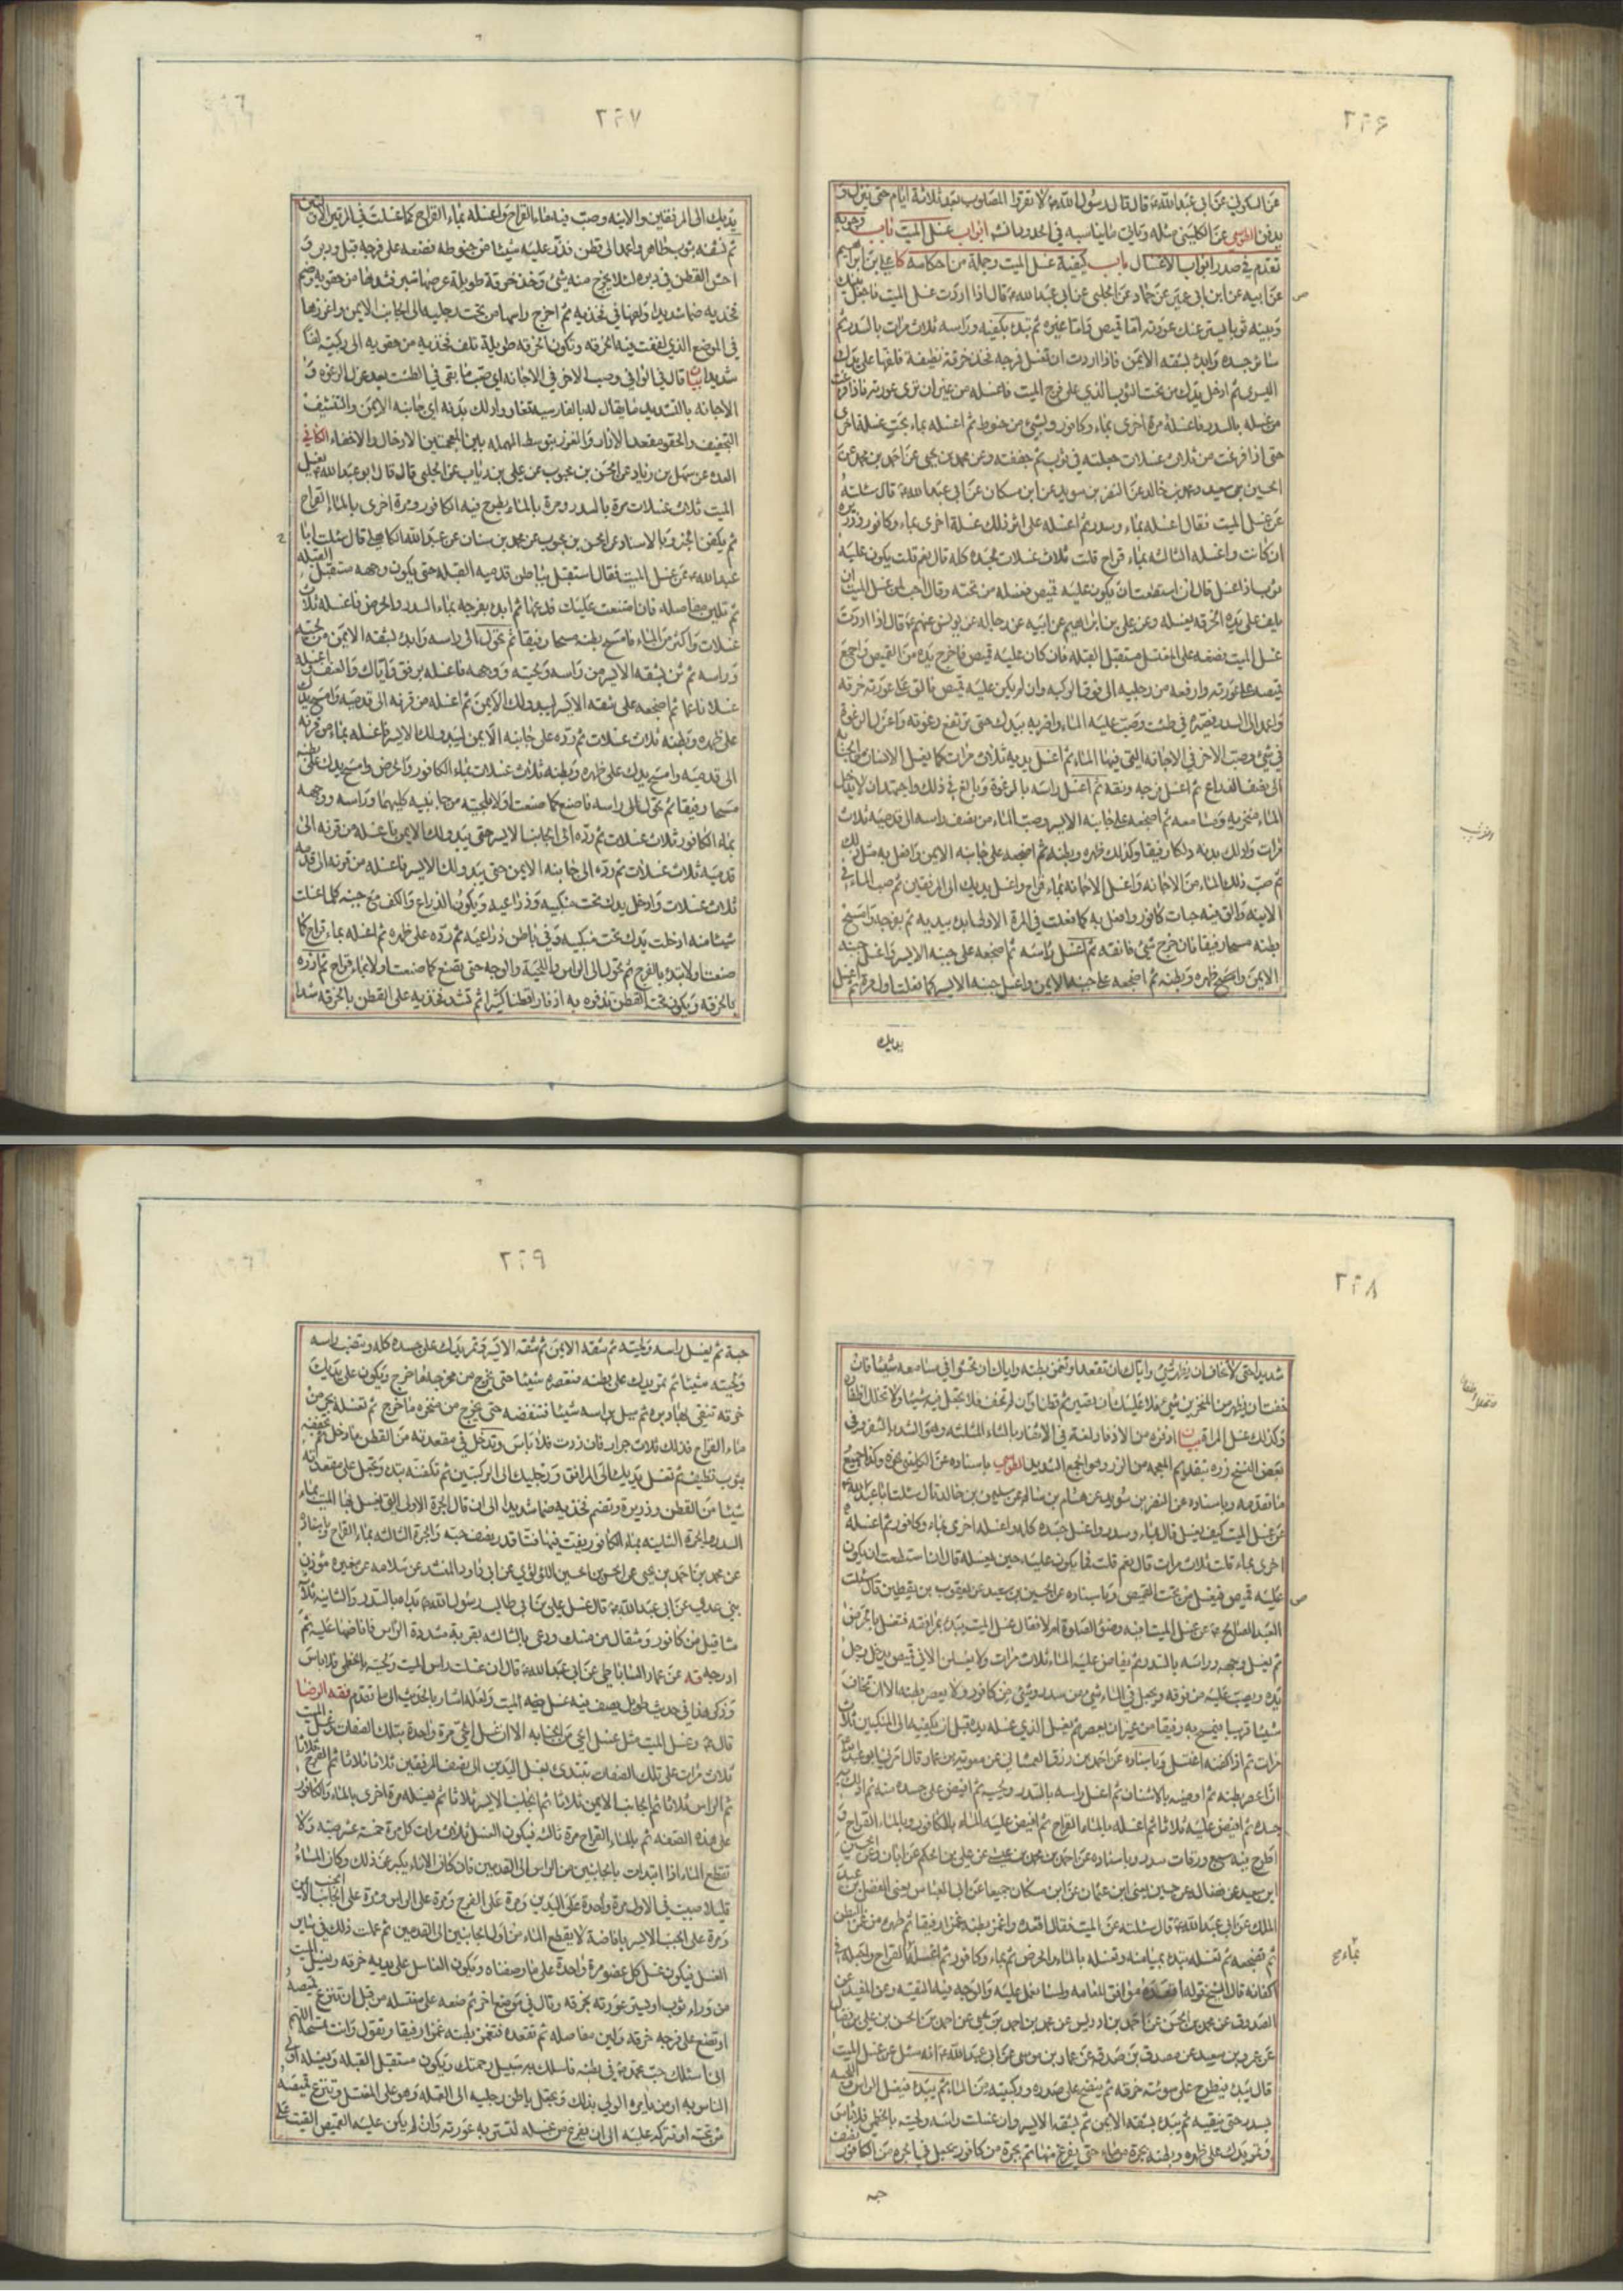 ٢٩٦
عن السكوني عن ابي عبدالله ع قال قال رسول الله ص لا تقروا المصلوب بعد ثلاثة ايام حتى ينزل و
يدفن الطوسي عن الكليني مثله وياتي ما يناسبه في الحدود انشه ابواب غسل الميت باب وجوبه
تقدم في صدر ابواب الاغسال باب كيفية غسل الميت وجملة من احكامه كا علي بن ابراهيم
عن ابيه عن ابن ابي عمير عن حماد عن الحلبي عن ابي عبدالله ع قال اذا اردت غسل الميت فاجعل بينك
وبينه ثوبا يستر عنك عورته اما قميص واما غيره ثم تبدء بكفيه وراسه ثلاث مرات بالسدر ثم
سائر جسده وابدء بشقه الايمن فاذا اردت ان تغسل فرجه فخذ خرقة نظيفة فلفها على يدك
اليسرى ثم ادخل يدك من تحت الثوب الذي على فرج الميت فاغسله من غير ان ترى عورته فاذا فرغت
من غسله بالسدر فاغسله مرة اخرى بماء وكافور وبشئ من حنوط ثم اغسله بماء بحت غسلة اخرى
حتى اذا فرغت من ثلاث غسلات جعلته في ثوب ثم جففته وعن محمد بن يحيى عن احمد بن محمد عن
الحسين بن سعيد ومحمد بن خالد عن النضر بن سويد عن ابن مسكان عن ابي عبدالله ع قال سئلته
عن غسل الميت فقال اغسله بماء وسدر ثم اغسله على اثر ذلك غسلة اخرى بماء وكافور وذريرة
ان كانت واغسله الثالثه بماء قراح قلت ثلاث غسلات لجسده كله قال نعم قلت يكون عليه
ثوب اذا غسل قال ان استطعت ان يكون عليه قميص فغسله من تحته وقال احب لمن غسل الميت ان
يلف على يده الخرقه يغسله وعن علي بن ابراهيم عن ابيه عن رجاله عن يونس عنهم ع قال اذا اردت
غسل الميت فضعه على المغتسل مستقبل القبله فان كان عليه قميص فاخرج يده من القميص واجمع
قميصه على عورته وارفعه من رجليه الى فوق الركبه وان لم يكن عليه قميص فالق على عورته خرقه
واعمد الى السدر فصيره في طشت وصب عليه الماء واضربه بيدك حتى ترتفع رغوته واعزل الرغوة
في شئ وصب الاخر في الاجانه التي فيها الماء ثم اغسل يديه ثلاث مرات كما يغسل الانسان من الجنابه
الى نصف الذراع ثم اغسل فرجه ونقه ثم اغسل راسه بالرغوة وبالغ في ذلك واجتهد ان لا يدخل
الماء منخريه ومسامعه ثم اضجعه على جانبه الايسر وصب الماء من نصف راسه الى قدميه ثلاث
مرات وادلك بدنه دلكا رفيقا وكذلك ظهره وبطنه ثم اضجعه على جانبه الايمن وافعل به مثل ذلك
ثم صب ذلك الماء من الاجانه واغسل الاجانه بماء قراح واغسل يديك الى المرفقين ثم صب الماء في
الانيه والق فيه حبات كافور وافعل به كما فعلت في المرة الاولى ابدء بيديه ثم بفرجه وامسح
بطنه مسحا رفيقا فان خرج شئ فانقه ثم اغسل راسه ثم اضجعه على جنبه الايسر واغسل جنبه
الايمن وامسح ظهره وبطنه ثم اضجعه على جنبه الايمن واغسل جنبه الايسر كما فعلت اول مرة ثم اغسل
يديك
٢٩٧
يديك الى المرفقين والانيه وصب فيه ماء القراح واغسله بماء القراح كما غسلت في المرتين الاوليين
ثم نشفه بثوب طاهر واعمد الى قطن فذر عليه شيئا من حنوطه فضعه على فرجه قبل ودبر و
احش القطن في دبره لئلا يخرج منه شئ وخذ خرقة طويلة عرضها شبر فشدها من حقويه وضم
فخذيه ضما شديدا ولفها في فخذيه ثم اخرج راسها من تحت رجليه الى الجانب الايمن واغرزها
في الموضع الذي لففت فيه الخرقه وتكون الخرقه طويلة تلف فخذيه من حقويه الى ركبتيه لفا
شديدا بيان قال في الوافي وصب الاخر في الاجانه اي صب ما يبقى في الطشت بعد عزل الرغوة و
الاجانه بالتشديد ما يقال له بالفارسيه تغار وادلك بدنه اي جانبه الايمن والتنشيف
التجفيف والحقو مقعد الازار والغرز بتوسط المهمله بين المعجمتين الادخال والاخفاء الكافي
العدة عن سهل بن زياد عن الحسن بن محبوب عن علي بن رئاب عن الحلبي قال قال ابو عبدالله ع يغسل
الميت ثلاث غسلات مرة بالسدر ومرة بالماء يطرح فيه الكافور ومرة اخرى بالماء القراح
ثم يكفن الخبر وبالاسناد عن الحسن بن محبوب عن محمد بن سنان عن عبدالله الكاهلي قال سئلت ابا
عبدالله ع عن غسل الميت فقال استقبل بباطن قدميه القبله حتى يكون وجهه مستقبل القبله
ثم تلين مفاصله فان امتنعت عليك فدعها ثم ابدء بفرجه بماء السدر والحرض فاغسله ثلاث
غسلات واكثر من الماء فامسح بطنه مسحا رفيقا ثم تحول الى راسه وابدء بشقه الايمن من لحيته
وراسه ثم ثن بشقه الايسر من راسه ولحيته ووجهه فاغسله برفق واياك والعنف واغسله
غسلا ناعما ثم اضجعه على شقه الايسر ليبدو لك الايمن ثم اغسله من قرنه الى قدميه وامسح يدك
على ظهره وبطنه ثلاث غسلات ثم رده على جانبه الايمن ليبدو لك الايسر فاغسله بماء من قرنه
الى قدميه وامسح يدك على ظهره وبطنه ثلاث غسلات بماء الكافور والحرض وامسح يدك على بطنه
مسحا رفيقا ثم تحول الى راسه فاصنع كما صنعت اولا بلحيته من جانبيه كليهما وراسه ووجهه
بماء الكافور ثلاث غسلات ثم رده الى الجانب الايسر حتى يبدو لك الايمن فاغسله من قرنه الى
قدميه ثلاث غسلات ثم رده الى جانبه الايمن حتى يبدو لك الايسر فاغسله من قرنه الى قدميه
ثلاث غسلات وادخل يدك تحت منكبيه وذراعيه ويكون الذراع والكف مع جنبه كلما غسلت
شيئا منه ادخلت يدك تحت منكبيه وفي باطن ذراعيه ثم رده على ظهره ثم اغسله بماء قراح كما
صنعت اولا تبدء بالفرج ثم تحول الى الراس واللحية والوجه حتى تصنع كما صنعت اولا بماء قراح ثم ازره
بالخرقه ويكون تحت القطن تذفره به اذفارا قطنا كثيرا ثم تشد فخذيه على القطن بالخرقه شدا
٢٩٨
شديدا حتى لا تخاف ان يظهر شئ واياك ان تقعده او تغمز بطنه واياك ان تحشو في مسامعه شيئا فان
خفت ان يظهر من المنخرين شئ فلا عليك ان تصير ثم قطنا وان لم تخف فلا تجعل فيه شيئا ولا تخلل اظفاره
وكذلك غسل المراة بيان
بعض النسخ
ما تقدمه وباسناده عن النضر بن سويد عن هشام بن سالم عن سليمن بن خالد قال سئلت ابا عبدالله ع
عن غسل الميت كيف يغسل قال بماء وسدر واغسل جسده كله واغسله اخرى بماء وكافور ثم اغسله
اخرى بماء قلت ثلاث مرات قال نعم قلت فما يكون عليه حين يغسله قال ان استطعت ان يكون
عليه قميص فيغسل من تحت القميص وباسناده عن الحسين بن سعيد عن يعقوب بن يقطين قال سئلت
العبد الصالح ع عن غسل الميت افيه وضوء الصلوة ام لا فقال غسل الميت يبدء بمرافقه فتغسل بالحرض
ثم يغسل وجهه وراسه بالسدر ثم يفاض عليه الماء ثلاث مرات ولا يغسلن الا في قميص يدخل رجل
يده ويصب عليه من فوقه ويجعل في الماء شئ من سدر وشئ من كافور ولا يعصر بطنه الا ان تخاف
شيئا قريبا فيمسح به رفيقا من غير ان يعصر ثم يغسل الذي غسله يده قبل ان يكفنه الى المنكبين ثلاث
مرات ثم اذا كفنه اغتسل وباسناده عن احمد بن رزق الغمشاني عن معوية بن عمار قال امرني ابو عبدالله
ان اعصر بطنه ثم اوضيه بالاشنان ثم اغسل راسه بالسدر ولحييه ثم افيض على جسده منه ثم ادلك به
جسده ثم افيض عليه ثلاثا ثم اغسله بالماء القراح ثم افيض عليه الماء بالكافور وبالماء القراح و
اطرح فيه سبع ورقات سدر وباسناده عن احمد بن محمد بن عيسى عن علي بن الحكم عن ابان وعن الحسين
ابن سعيد عن فضاله عن حسين يعني ابن عثمان عن ابن مسكان جميعا عن ابي العباس يعني الفضل بن عبد
الملك عن ابي عبدالله ع قال سئلته عن الميت فقال اقعده واغمز بطنه غمزا رفيقا ثم طهره من غمز البطن
ثم تضجعه ثم تغسله تبدء بميامنه وتغسله بالماء والحرض ثم بماء وكافور ثم اغسله بالقراح واجعله في
اكفانه قال الشيخ قوله اقعده موافق للعامه ولسنا نعمل عليه والوجه فيه التقيه وعن المفيد عن
الصدوق عن محمد بن الحسن عن احمد بن ادريس عن محمد بن احمد بن يحيى عن احمد بن الحسن بن علي بن فضال
عن عمرو بن سعيد عن مصدق بن صدقه عن عمار بن موسى عن ابي عبدالله ع انه سئل عن غسل الميت
قال يبدء فيطرح على سوئته خرقه ثم ينضح على صدره وركبتيه من الماء ثم يبدء فيغسل الراس واللحيه
بسدر حتى ينقيه ثم يبدء بشقه الايمن ثم بشقه الايسر وان غسلت راسه ولحيته بالخطمي فلا باس
وتمر يدك على ظهره وبطنه بجرة من ماء حتى يفرغ منهما ثم بجرة من كافور يجعل في الجره من الكافور نصف
حبه
بماء صح
٢٩٩
حبة ثم يغسل راسه ولحيته ثم شقه الايمن ثم شقه الايسر وتمر يدك على جسده كله وتنصب راسه
ولحيته شيئا ثم تمر يدك على بطنه فتعصره شيئا حتى يخرج من مخرجه ما خرج ويكون على يديك
خرقه تنقي بها دبره ثم ميل براسه شيئا فتنفضه حتى يخرج من منخره ما خرج ثم تغسله بجر من
ماء القراح فذلك ثلاث جرار فان زدت فلا باس وتدخل في مقعدته من القطن ما دخل ثم تجففه
بثوب نظيف ثم تغسل يديك الى المرافق ورجليك الى الركبتين ثم تكفنه تبدء وتجعل على مقعدته
شيئا من القطن وذريرة وتضم فخذيه ضما شديدا الى ان قال الجرة الاولى التي يغسل بها الميت بماء
السدر والجرة الثانيه بماء الكافور يفت فيها فتا قدر نصف حبه والجرة الثالثه بماء القراح وباسناده
عن محمد بن احمد بن يحيى عن الحسن بن الحسين اللؤلؤي عن ابي داود المنشد عن سلامه عن مغيره مؤذن
بني عدي عن ابي عبدالله ع قال غسل علي بن ابي طالب رسول الله ص بداه بالسدر والثانيه ثلاثة
مثاقيل من كافور ومثقال من مسك ودعى بالثالثه بقربة مشددة الراس فافاضها عليه ثم
ادرجه قه عن عمار الساباطي عن ابي عبدالله ع قال ان غسلت راس الميت ولحيته بالخطمي فلا باس
وذكر هذا في حديث طويل يصف فيه غسل الميت ولعله اشار بالحديث الى ما تقدم فقه الرضا
قال ع وغسل الميت مثل غسل الحي من الجنابه الا ان غسل الحي مرة واحدة بتلك الصفات وغسل الميت
ثلاث مرات على تلك الصفات تبتدئ بغسل اليدين الى نصف المرفقين ثلاثا ثلاثا ثم الفرج ثلاثا
ثم الراس ثلاثا ثم الجانب الايمن ثلاثا ثم الجانب الايسر ثلاثا ثم تغسله مرة اخرى بالماء والكافور
على هذه الصفه ثم بالماء القراح مرة ثالثه فيكون الغسل ثلاث مرات كل مرة خمسة عشر صبه ولا
تقطع الماء اذا ابتدات بالجانبين من الراس الى القدمين فان كان الاناء يكبر عن ذلك وكان الماء
قليلا صببت في الاول مرة واحدة على اليدين ومرة على الفرج ومرة على الراس ومرة على الجنب الايمن
ومرة على الجنب الايسر بافاضة لا يقطع الماء من اول الجانبين الى القدمين ثم عملت ذلك في ساير
الغسل فيكون غسل كل عضو مرة واحدة على ما وصفناه ويكون الغاسل على يديه خرقه ويغسل الميت
من وراء ثوب او يستر عورته بخرقه وقال في موضع اخر ثم ضعه على مغتسله من قبل ان تنزع قميصه
او تضع على فرجه خرقه ولين مفاصله ثم تقعده فتغمز بطنه غمزا رفيقا وتقول وانت تمسحه اللهم
اني اسئلك حب محمد ص في بطنه فاسلك به سبيل رحمتك ويكون مستقبل القبله ويغسله اولى
الناس به او من يامره الولي بذلك وتجعل باطن رجليه الى القبله وهو على المغتسل وتنزع قميصه
من تحته او تتركه عليه الى ان تفرغ من غسله لتستر به عورته وان لم يكن عليه القميص القيت على